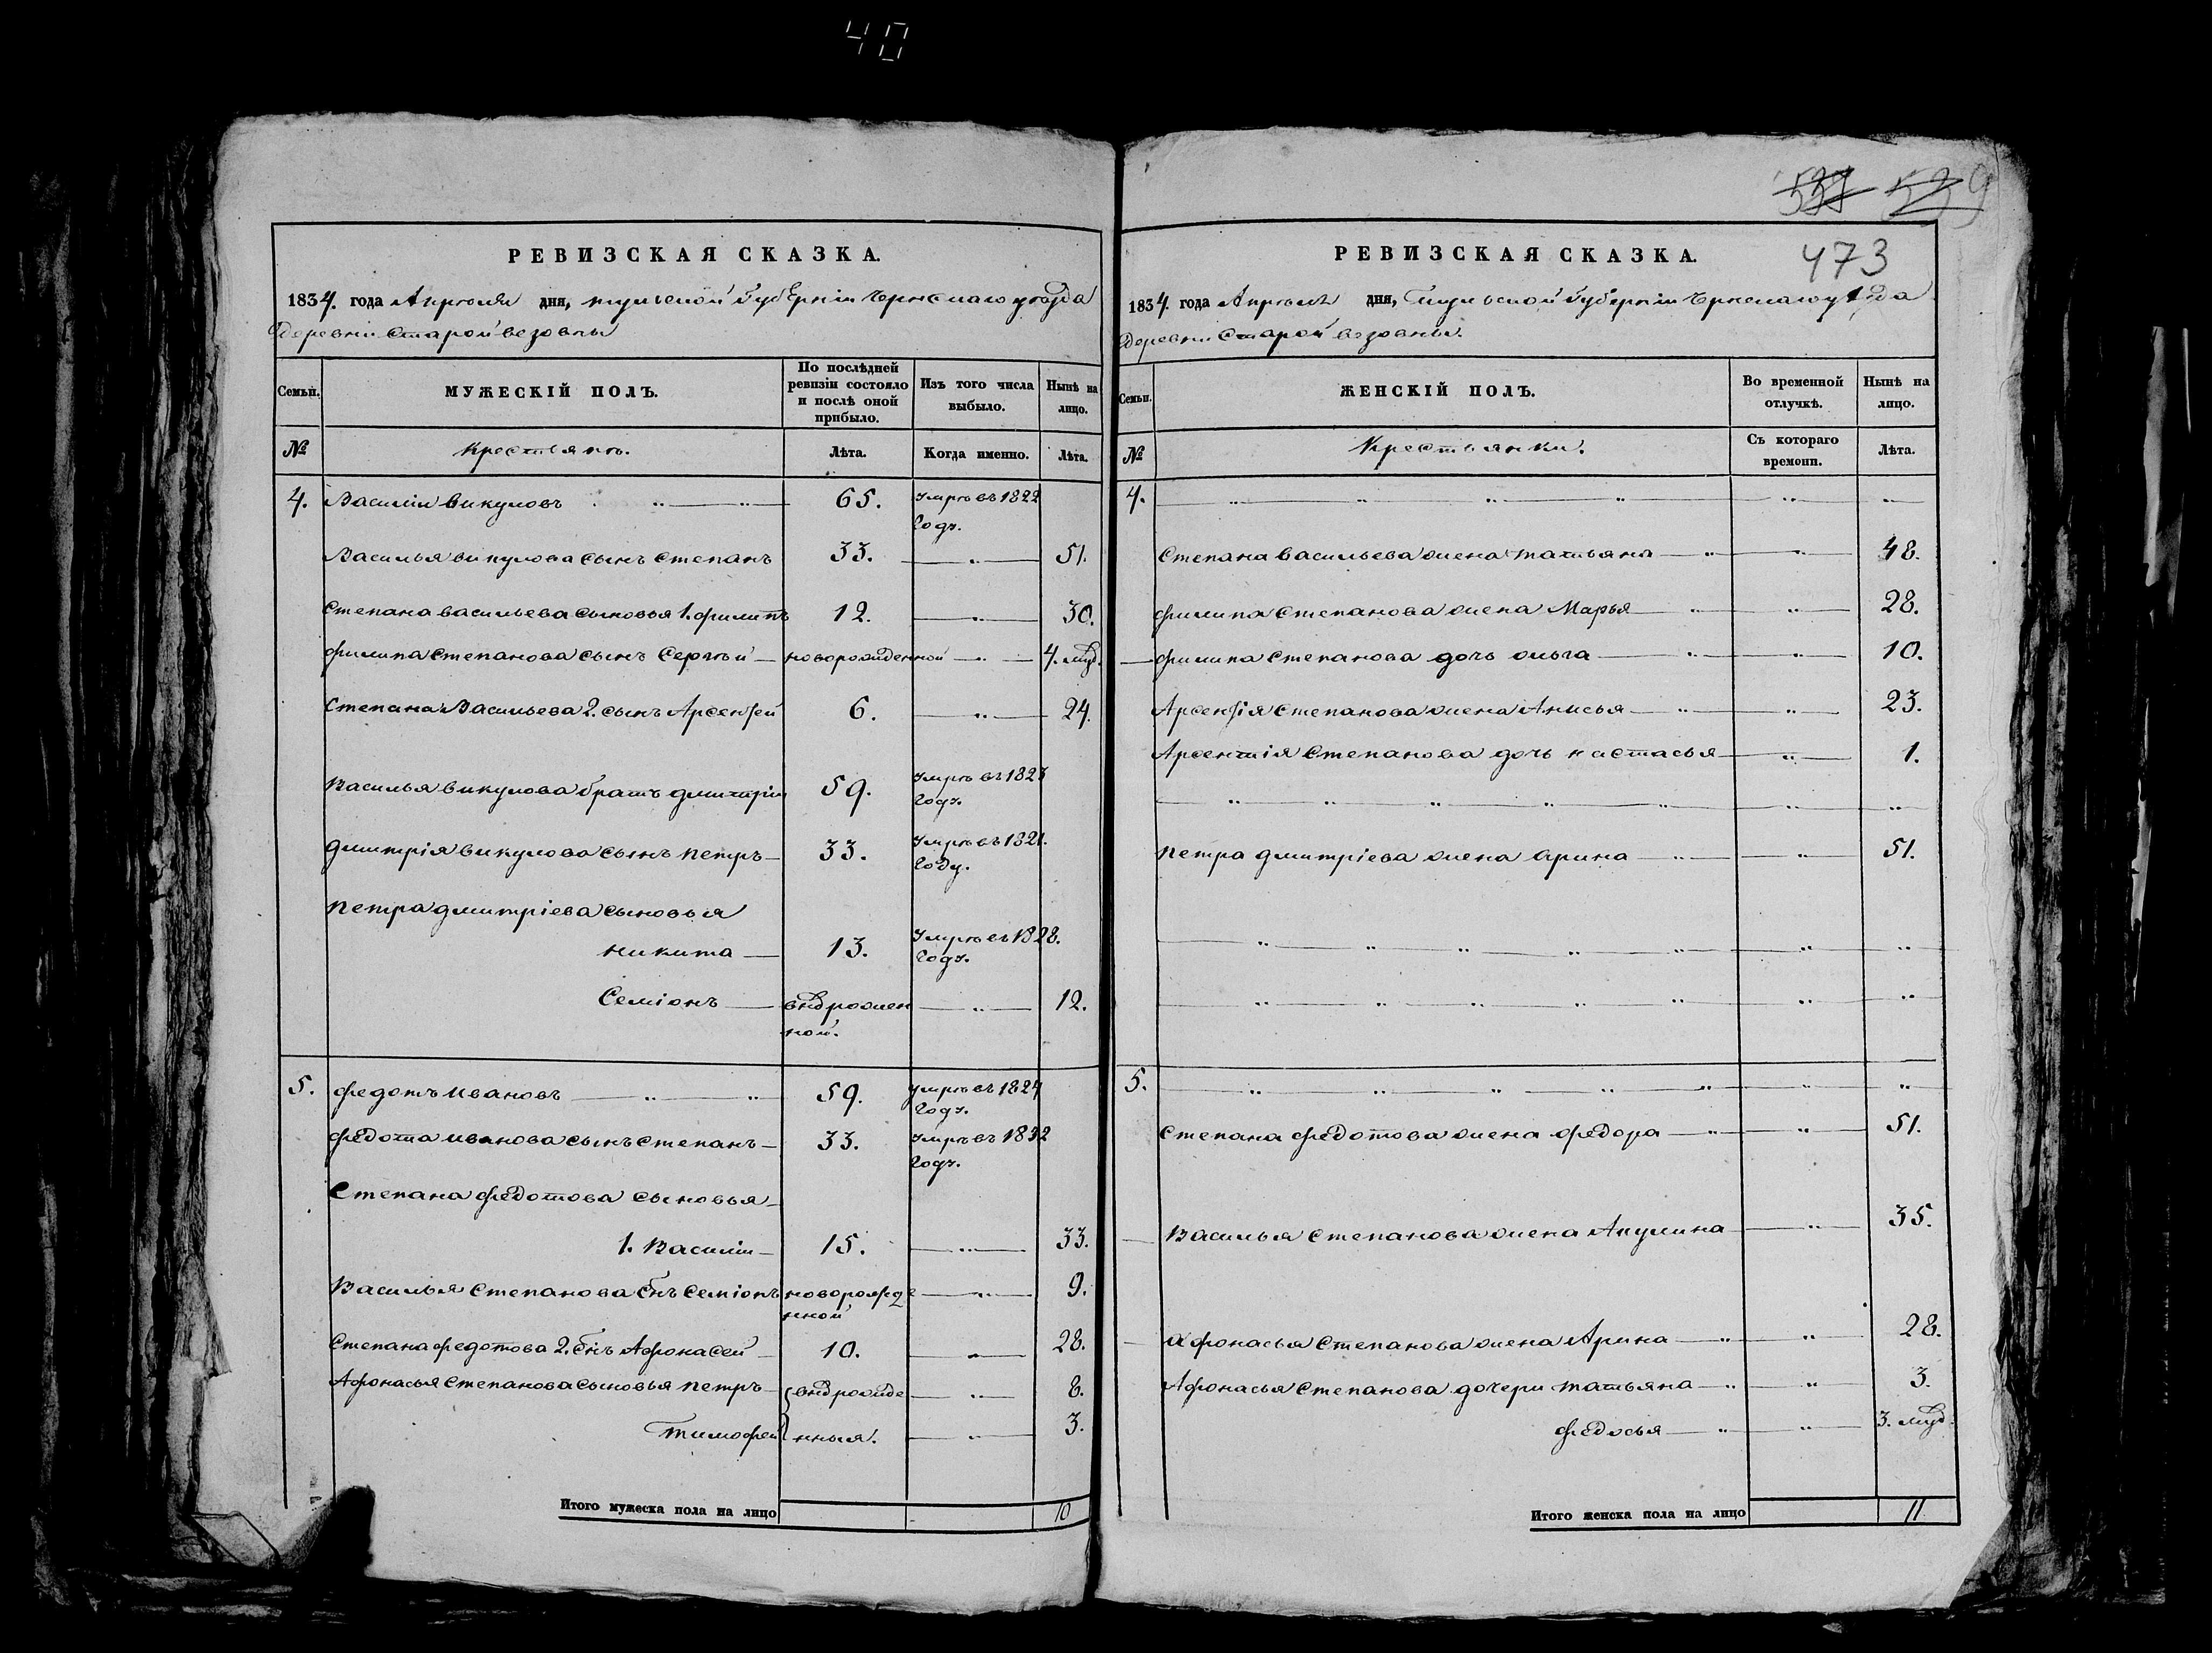 40
539 539
473
РЕВИЗСКАЯ СКАЗКА.
1834. года Апреля дня, тульской Губернiи чернскаго уезда
Деревни Старой везовны
Семьи.
МУЖЕСКІЙ ПОЛЪ.
По послѣдней ревизіи состояло и послѣ оной прибыло.
Изъ того числа выбыло.
Нынѣ на лицо.
№
Крестьянъ.
Лѣта.
Когда именно.
Лѣта.
4. Василiи викуловъ 65. умре въ 1822
Годѣ.
Василья викулова сынъ степанъ 33. 51.
степана васильева сыновья 1. филипъ 12. 30.
филипа степанова сынъ Сергѣй новорожденной 4. мѣд.
степана Васильева 2. сынъ Арсентей 6. 24.
Василья викулова братъ дмитрiи 59. умре въ 1823
Годѣ.
дмитрiя викулова сынъ петръ 33. умре въ 1821.
Году.
петра дмитрiева сыновья
никита 13. умре въ 1828.
Годѣ.
Семiонъ вндрожен 12.
ной.
5. федотъ ивановъ 59. умре въ 1824
Годѣ.
федота иванова сынъ степанъ 33. умре въ 1832
Годѣ.
Степана федотова сыновья
1. Василiи 15. 33.
Василья степанова снъ семiонъ новорожде 9.
нной
Степана федотова 2. снъ Афонасей 10. 28.
Афонасья степанова сыновья петръ вндрожде 8.
тимофей нныя. 3.
Итого мужеска пола на лицо 10
РЕВИЗСКАЯ СКАЗКА.
1834. года Апреля дня, тульской Губернiи чрнскаго уезда
Деревни Старой везовны.
Семьи.
ЖЕНСКІЙ ПОЛЪ.
Во временной отлучкѣ.
Нынѣ на лицо.
№
Крестьянки.
Съ котораго времени.
Лѣта.
4.
степана васильева жена татьяна 48.
филипа степанова жена Марья 28.
филипа степанова дочь ольга 10.
Арсентiя степанова жена Анисья 23.
Арсентiя степанова дочь настасья 1.
петра дмитрiева жена арина 51.
5.
степана федотова жена федора 51.
Василья степанова жена Акулина 35.
афонасья степанова жена Арина 28.
Афонасья степанова дочери татьяна 3.
федосья 3. мѣд.
Итого женска пола на лицо 11